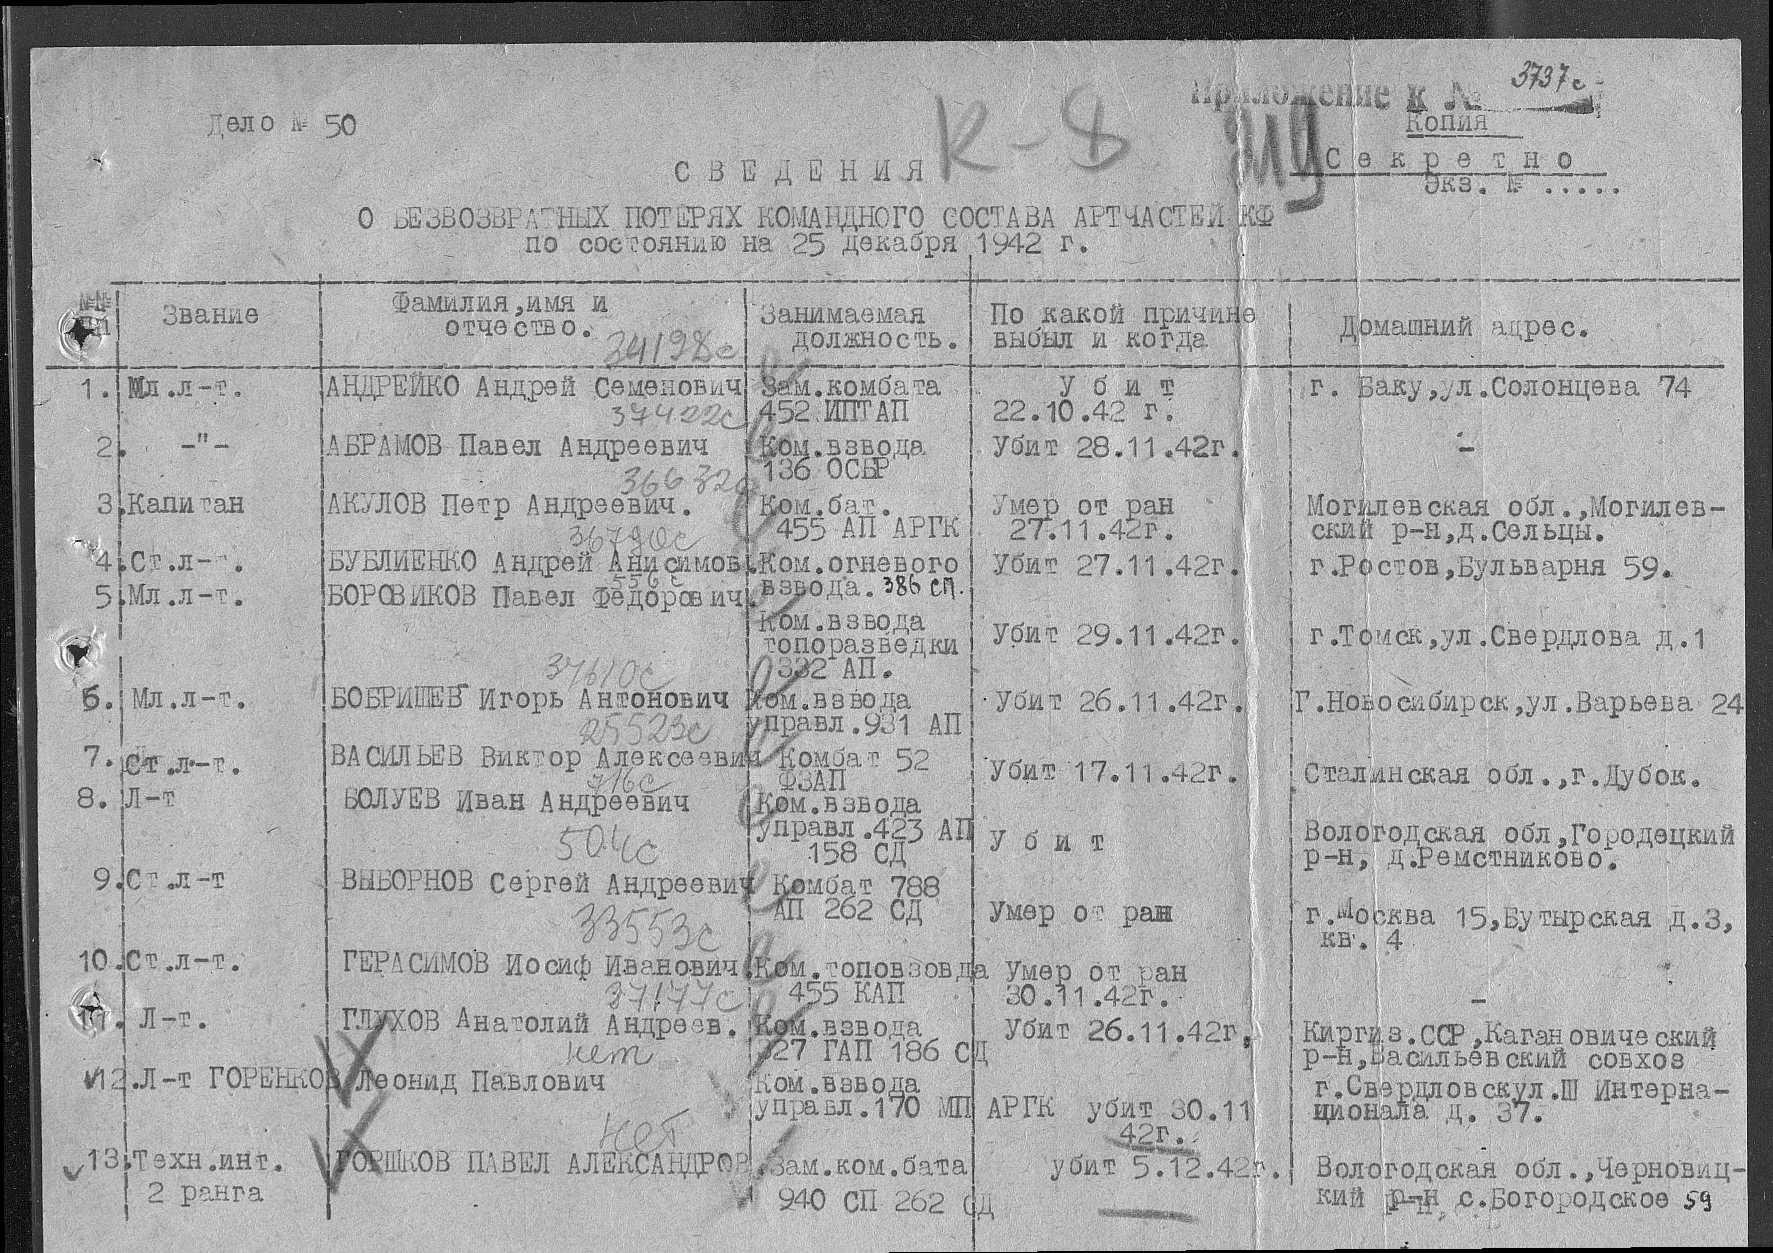 Приложение к № 3737с
Дело № 50
Копия
К-8
Секретно
Экз. № .....
СВЕДЕНИЯ
О БЕЗВОЗВРАТНЫХ ПОТЕРЯХ КОМАНДНОГО СОСТАВА АРТЧАСТЕЙ КФ
по состоянию на 25 декабря 1942 г.
№№ пп Звание Фамилия,имя и отчество. Занимаемая должность. По какой причине выбыл и когда Домашний адрес.
34198с
1. Мл.л-т. АНДРЕЙКО Андрей Семенович Зам.комбата У б и т г. Баку,ул.Солонцева 74
37422с 452 ИПТАП 22.10.42 г.
2. -"- АБРАМОВ Павел Андреевич Ком.взвода Убит 28.11.42г. -
136 ОСБР
36632с
3.Капитан АКУЛОВ Петр Андреевич. Ком.бат. Умер от ран Могилевская обл.,Могилев-
455 АП АРГК 27.11.42г. ский р-н,д.Сельцы.
36790с
4.Ст.л-т. БУБЛИЕНКО Андрей Анисимов. Ком.огневого Убит 27.11.42г. г.Ростов,Бульварня 59.
556с взвода. 386 сп.
5.Мл.л-т. БОРОВИКОВ Павел Федорович.
Ком.взвода
топоразведки Убит 29.11.42г. г.Томск,ул.Свердлова д.1
332 АП.
37610с
6. Мл.л-т. БОБРИШЕВ Игорь Антонович Ком.взвода Убит 26.11.42г. Г.Новосибирск,ул.Варьева 24
25523с управл.931 АП
7. Ст.л-т. ВАСИЛЬЕВ Виктор Алексеевич Комбат 52 Убит 17.11.42г. Сталинская обл.,г.Дубок.
716с ФЗАП
8. Л-т БОЛУЕВ Иван Андреевич Ком.взвода
управл.423 АП У б и т Вологодская обл,Городецкий
504с 158 СД р-н, д.Ремстниково.
9.Ст.л-т ВЫБОРНОВ Сергей Андреевич Комбат 788
АП 262 СД Умер от ран г.Москва 15,Бутырская д.3,
33553с кв. 4
10.Ст.л-т. ГЕРАСИМОВ Иосиф Иванович. Ком.топовзовда Умер от ран
37177с 455 КАП 30.11.42г. -
11. Л-т. ГЛУХОВ Анатолий Андреев. Ком.взвода Убит 26.11.42г, Киргиз.ССР,Кагановический
нет 327 ГАП 186 СД р-н,Васильевский совхоз
12.Л-т ГОРЕНКОВ Леонид Павлович Ком.взвода г.Свердловскул.Ш Интерна-
управл.170 МП АРГК убит 30.11 ционала д. 37.
42г.
нет
13.Техн.инт. ГОРШКОВ ПАВЕЛ АЛЕКСАНДРОВ. Зам.ком.бата убит 5.12.42г. Вологодская обл.,Черновиц-
2 ранга 940 СП 262 СД кий р-н с.Богородское 59